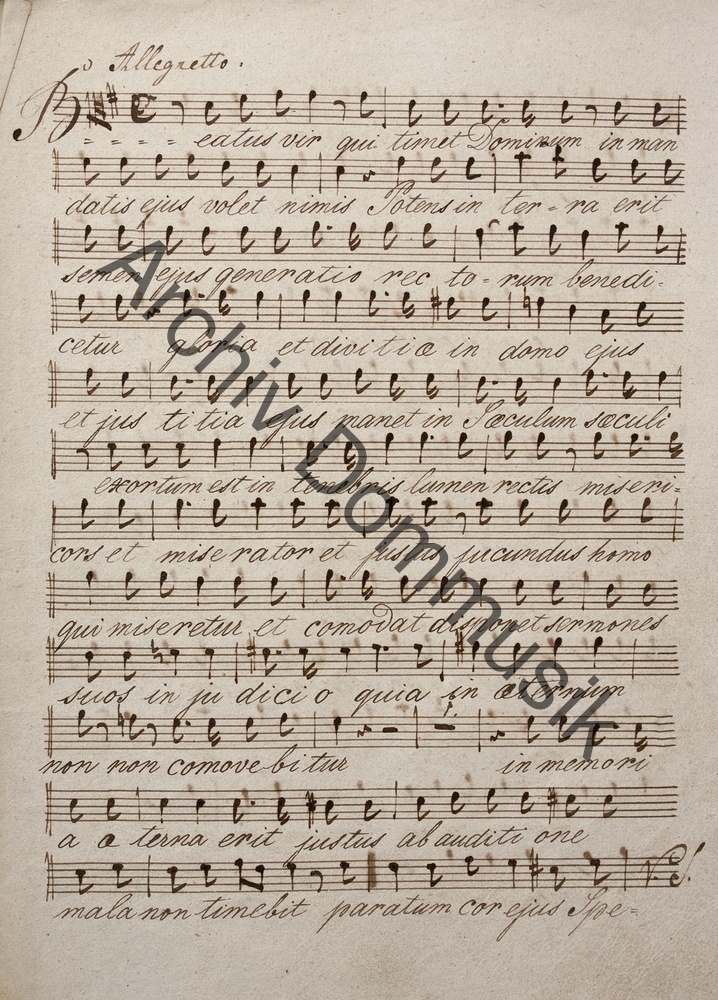 Allegretto.
Beatus vir qui timet Dominum in man
datis ejus volet nimis Potens in ter-ra erit
semen ejus generatio rec to-rum benedi-
cetur gloria et divitiæ in domo ejus
et jus titia ejus manet in Sæculum sæculi
exortum est in tenebris lumen rectis miseri-
cors et miserator et justus jucundus homo
qui miseretur et comodat disponet sermones
suos in ju dicio quia in æternum
non non comove-bitur in memori
a æ terna erit justus ab auditi one
mala non timebit paratum cor ejus Spe=
V. S.
Archiv Dommusik